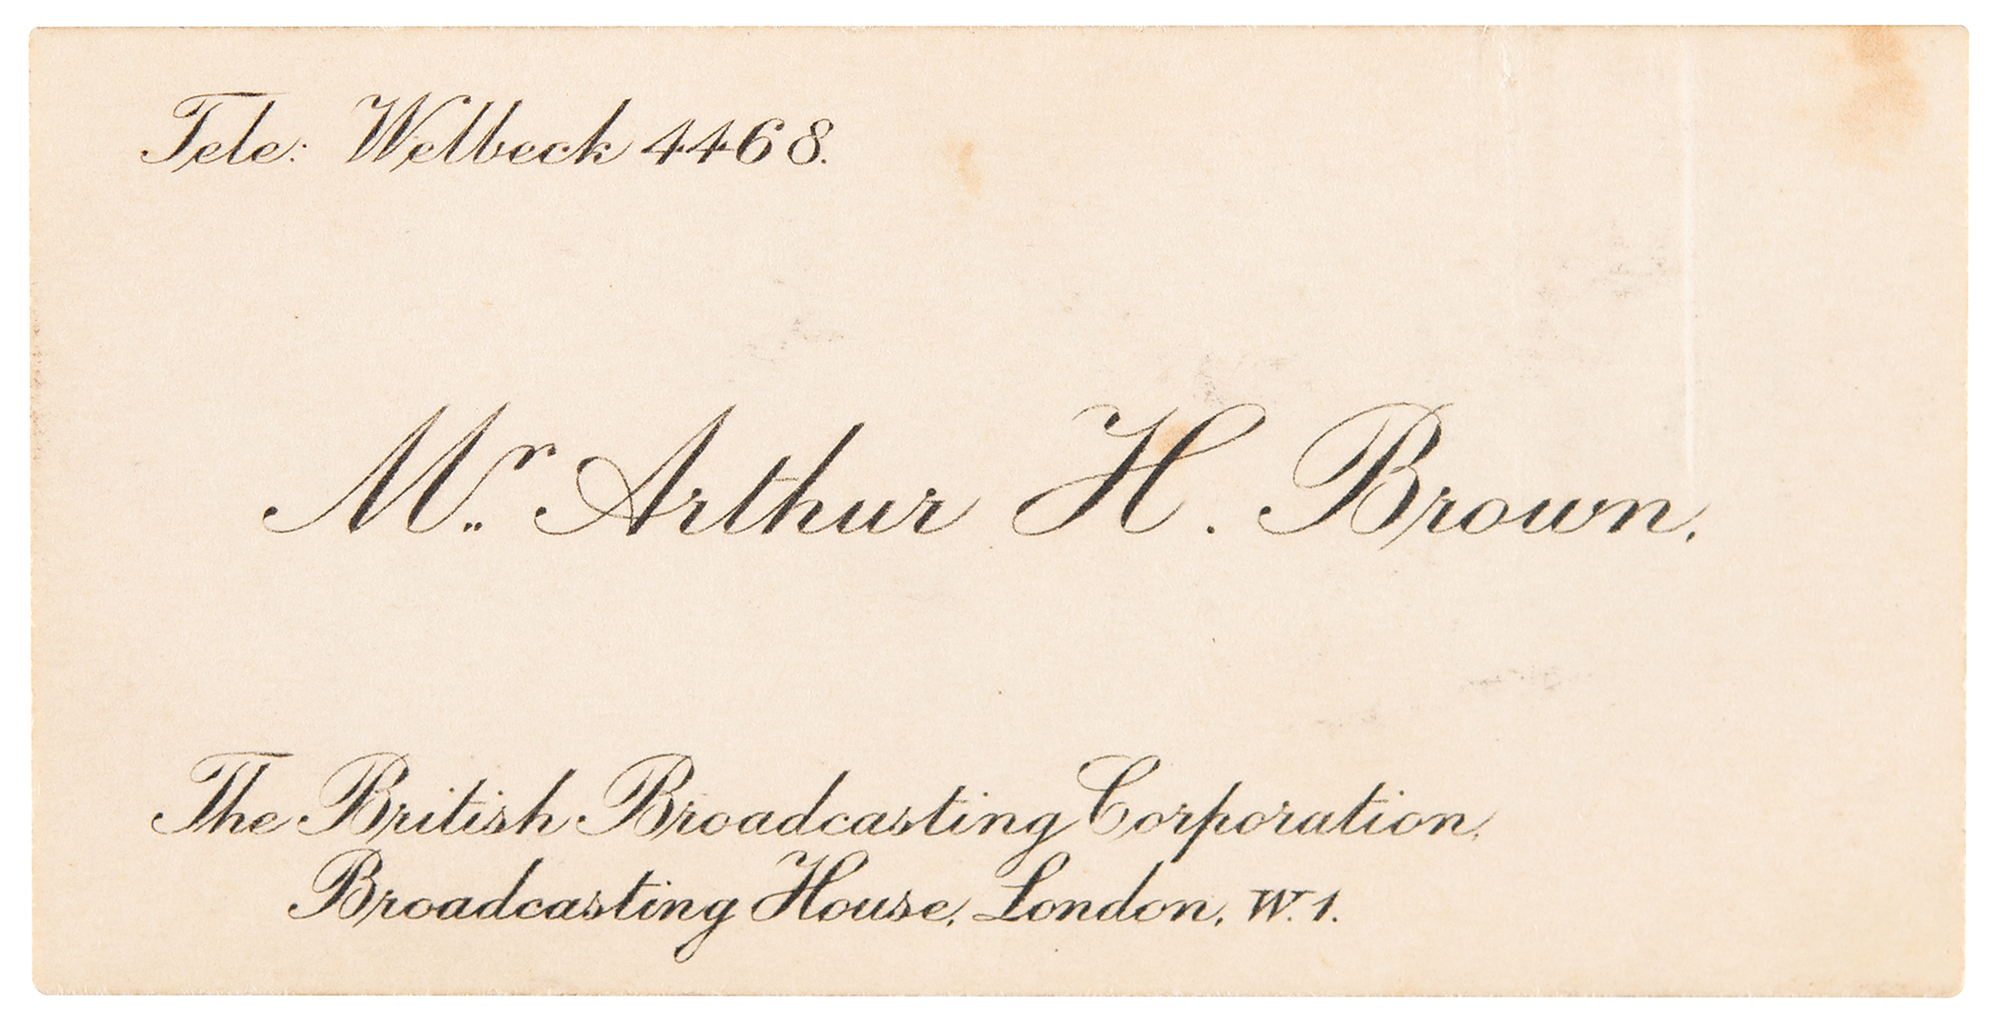 Tele: Welbeck 4468.
Mr. Arthur H. Brown.
The British Broadcasting Corporation,
Broadcasting House, London, W.1.